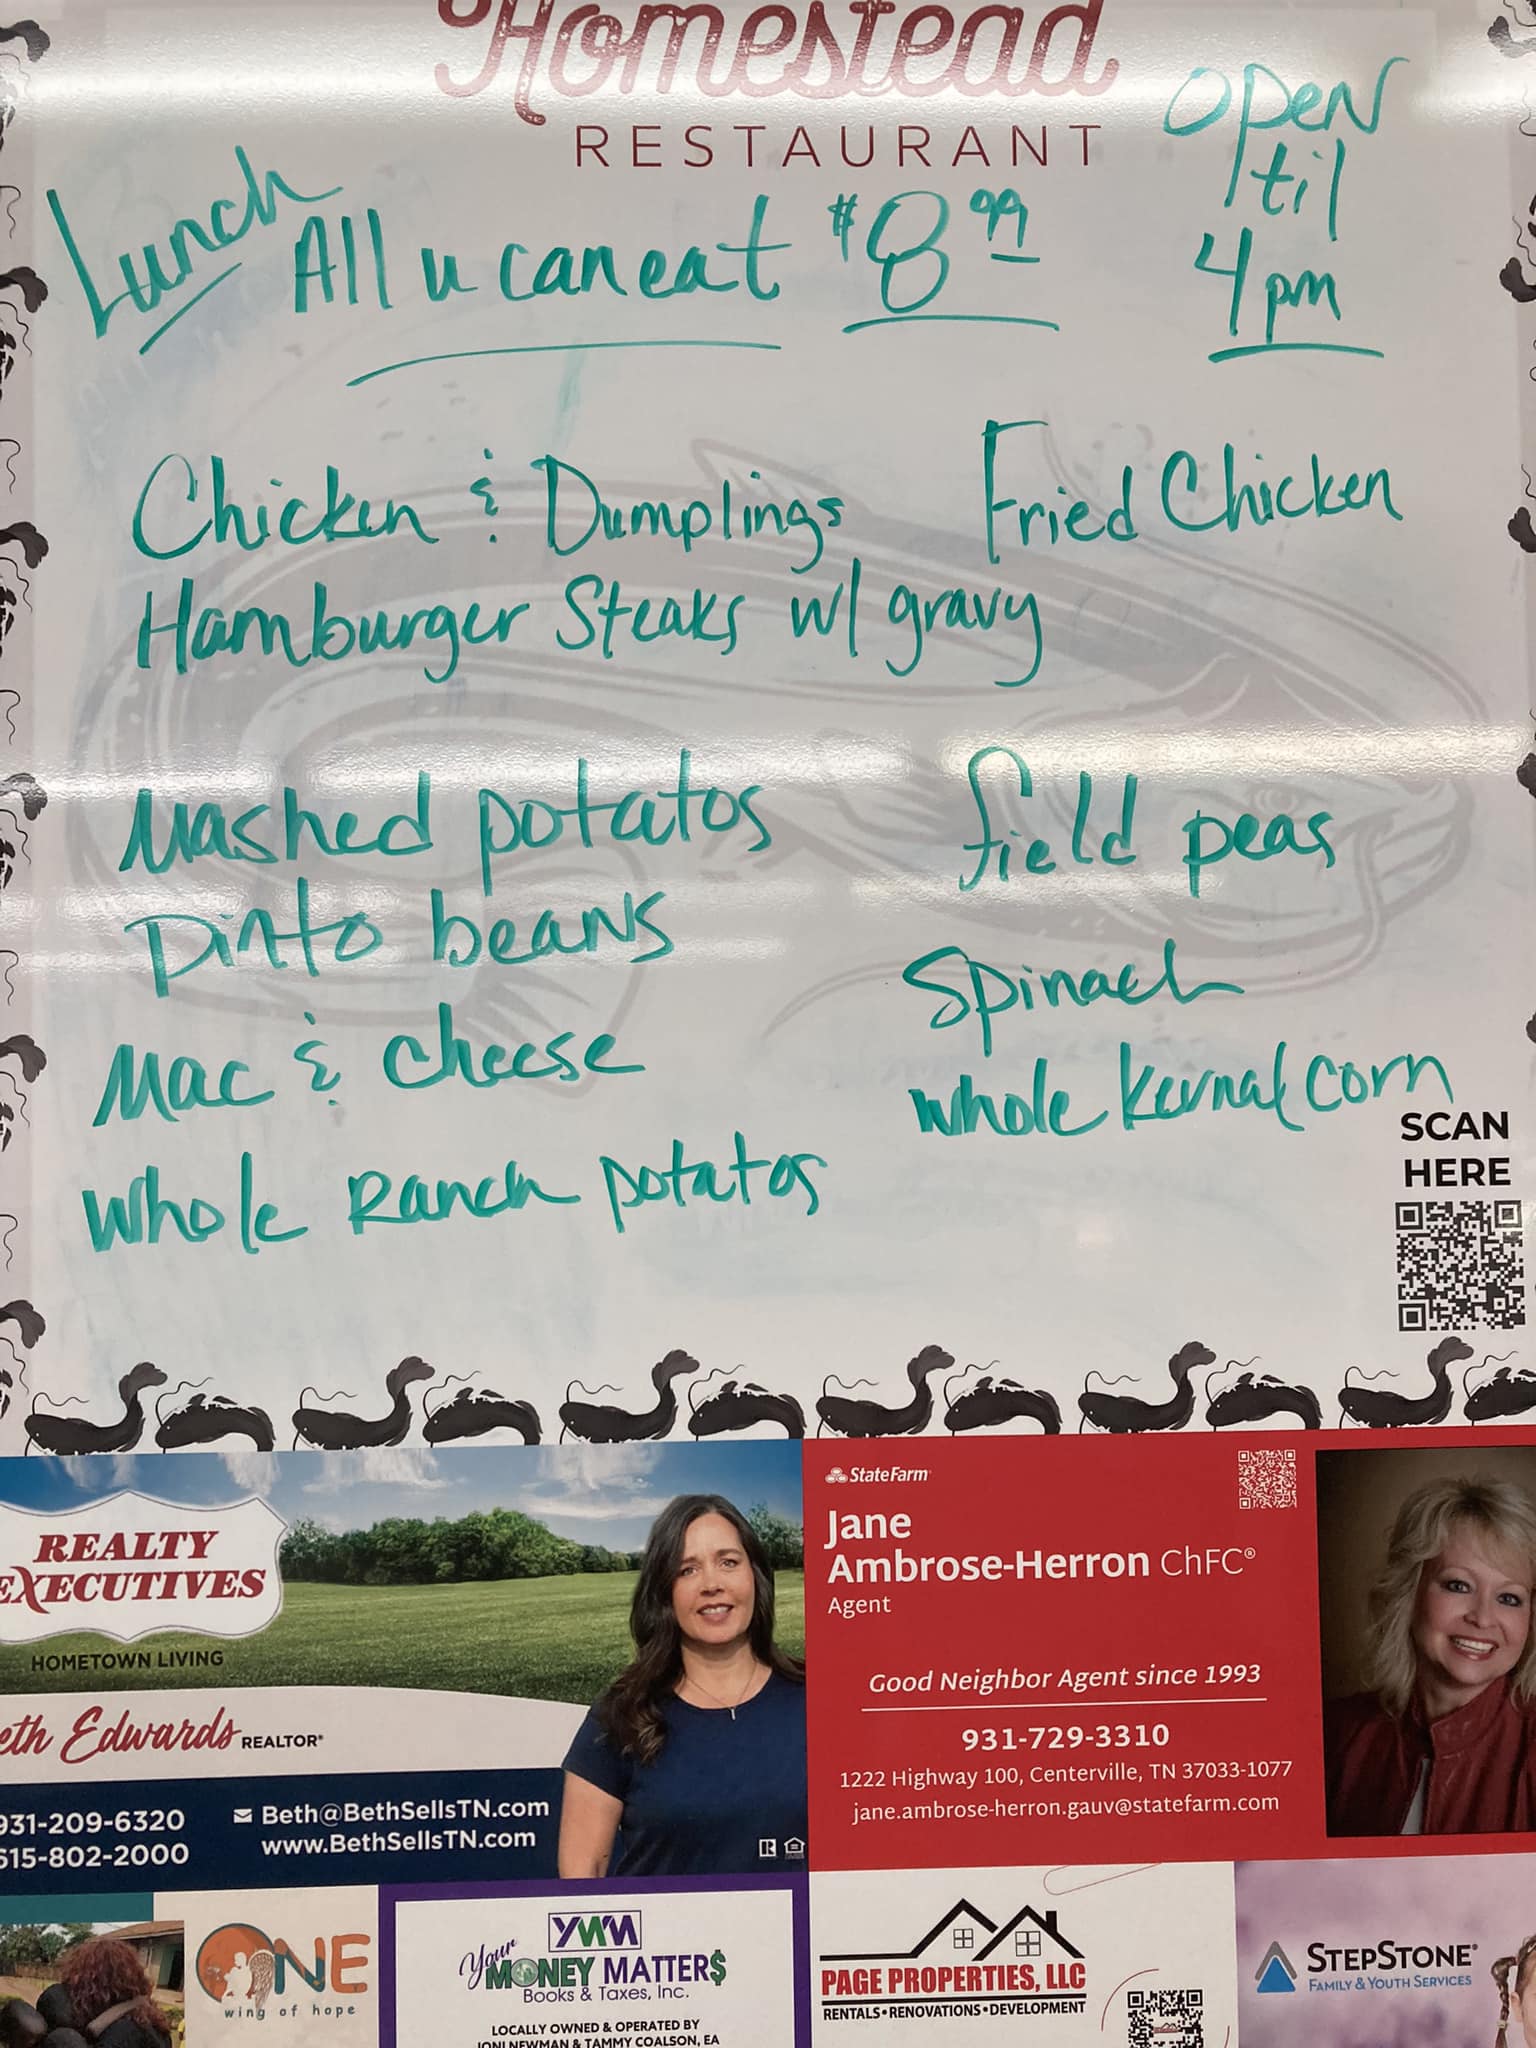 Homestead
RESTAURANT
Open
'til
4pm
Lunch
All u can eat $8.99
Chicken & Dumplings
Fried Chicken
Hamburger Steaks w/ gravy
Mashed potatos
field peas
Pinto beans
Spinach
Mac & cheese
Whole Kernal corn
Whole Ranch potatos
SCAN
HERE
REALTY
EXECUTIVES
HOMETOWN LIVING
eth Edwards REALTOR®
931-209-6320
615-802-2000
Beth@BethSellsTN.com
www.BethSellsTN.com
StateFarm
Jane
Ambrose-Herron ChFC®
Agent
Good Neighbor Agent since 1993
931-729-3310
1222 Highway 100, Centerville, TN 37033-1077
jane.ambrose-herron.gauv@statefarm.com
ONE
wing of hope
YMM
Your
MONEY MATTER$
Books & Taxes, Inc.
LOCALLY OWNED & OPERATED BY
JONI NEWMAN & TAMMY COALSON, EA
PAGE PROPERTIES, LLC
RENTALS•RENOVATIONS•DEVELOPMENT
STEPSTONE®
FAMILY & YOUTH SERVICES